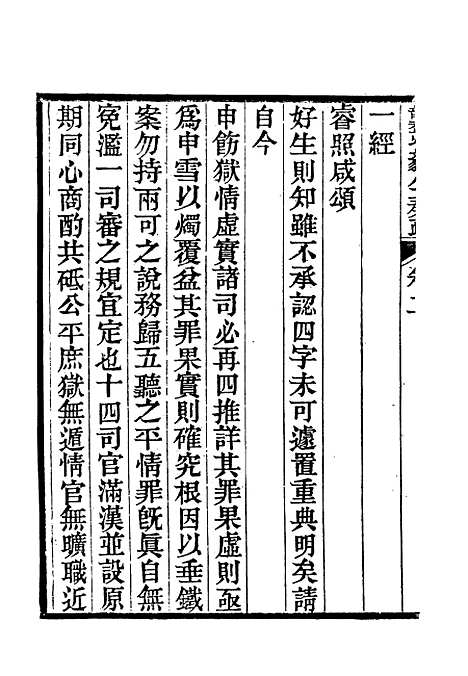 一經
睿照咸頌
好生則知雖不承認四字未可遽置重典明矣請
自今
申飭獄情虛實諸司必再四推詳其罪果虛則亟
爲申雪以燭覆盆其罪果實則確究根因以垂鐵
案勿持兩可之說務歸五聽之平情罪旣眞自無
冤濫一司審之規宜定也十四司官滿漢並設原
期同心商酌共砥公平庶獄無遁情官無曠職近